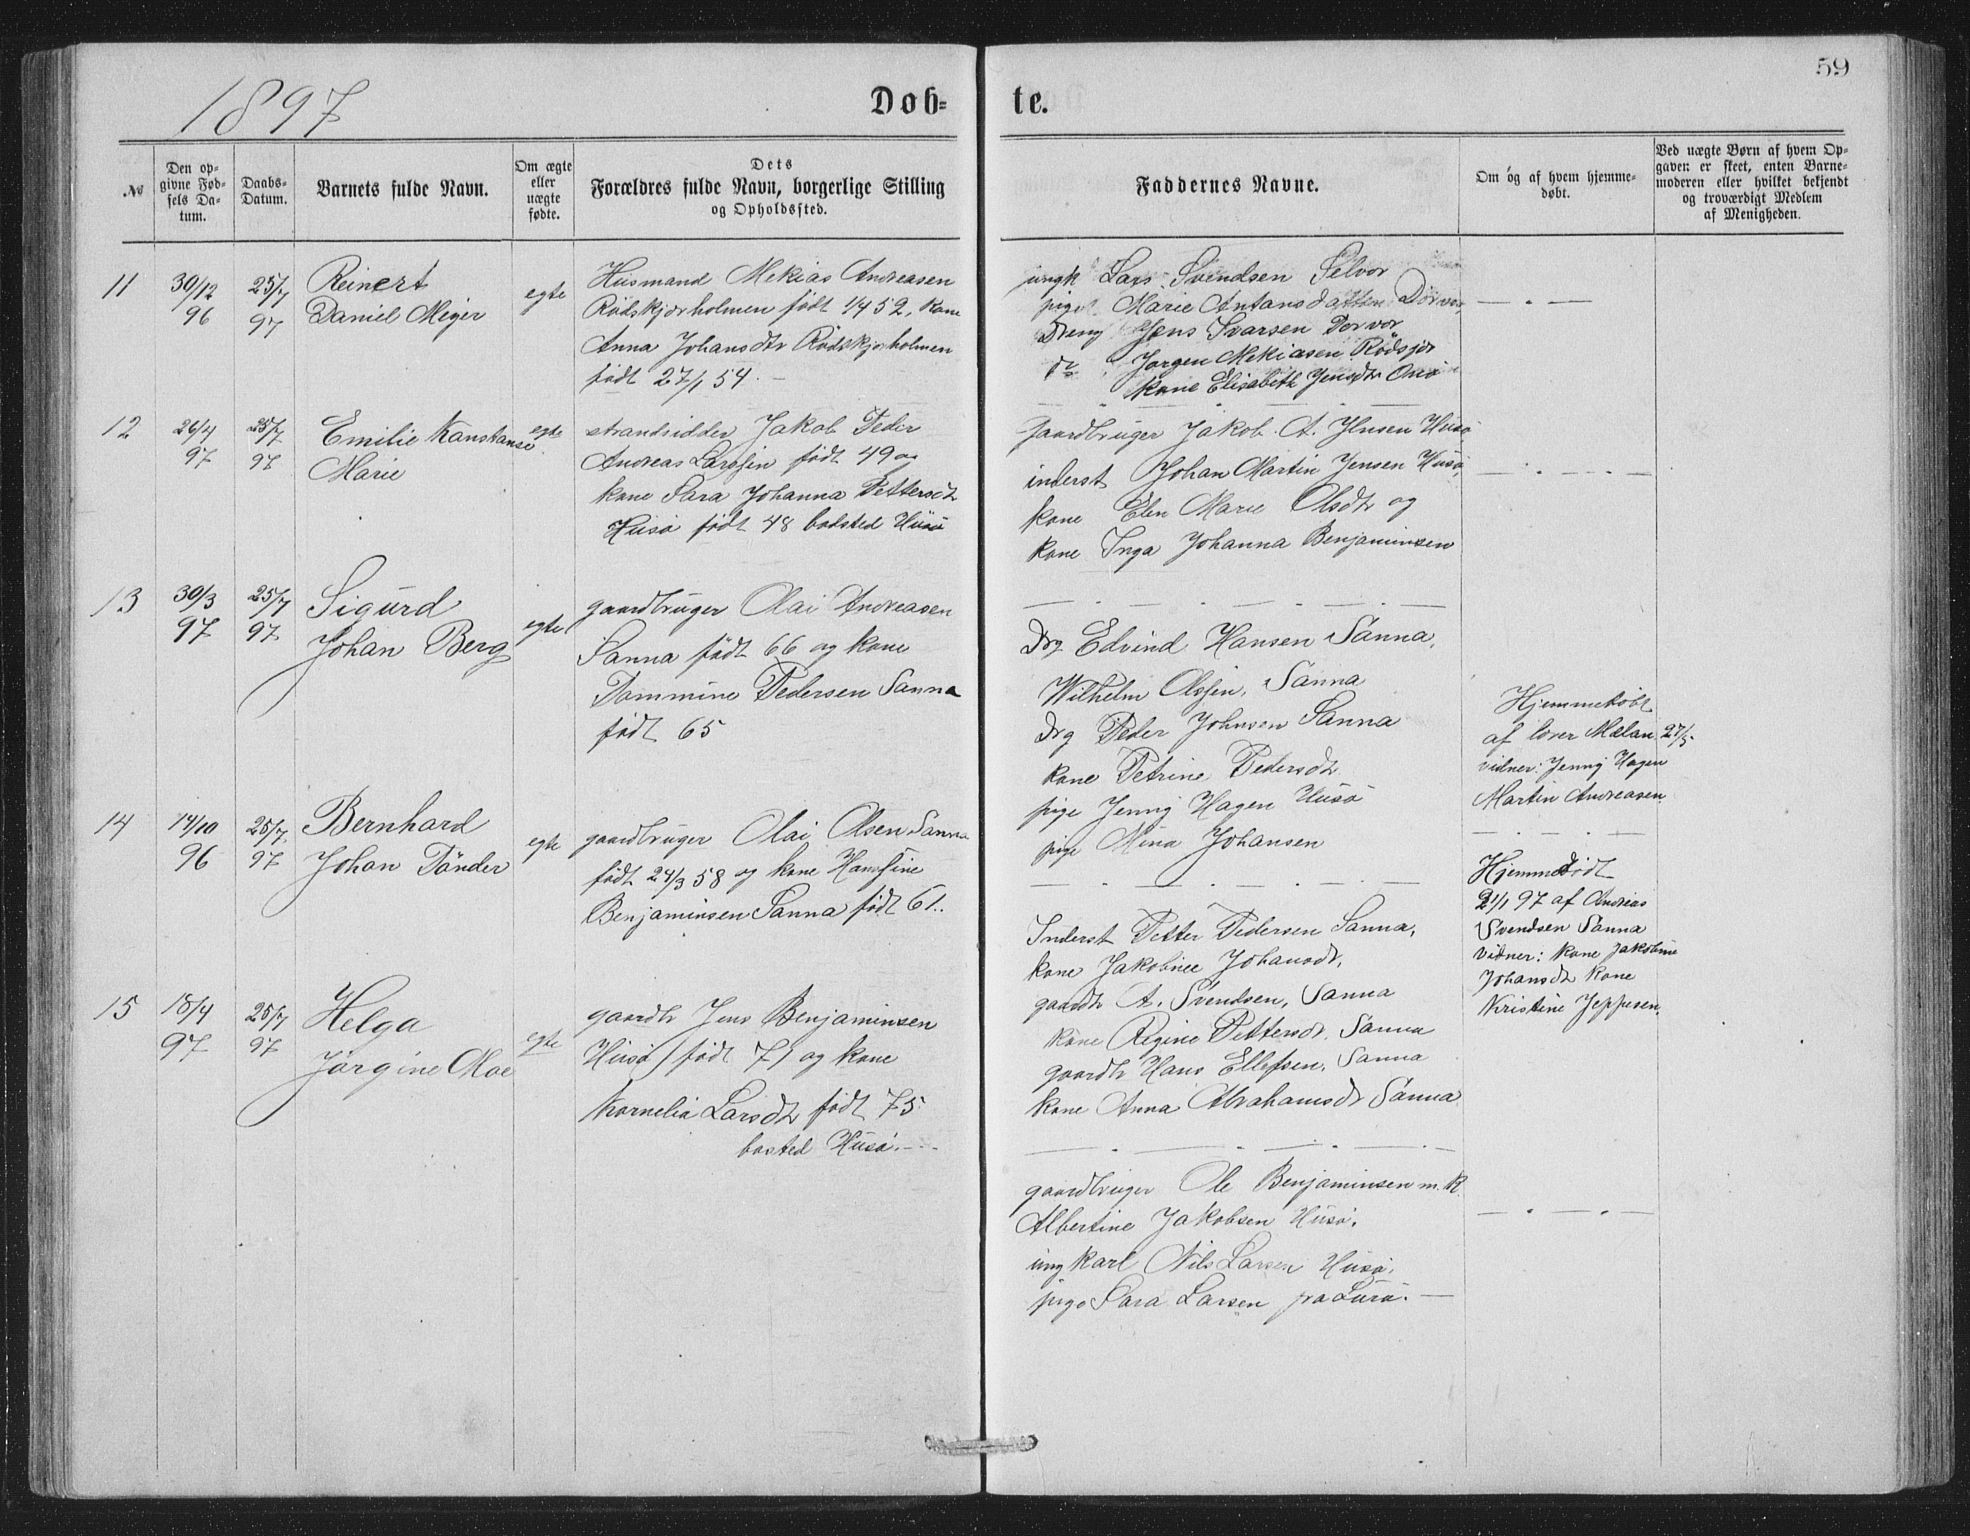 59
1897
Døb-
te.
№
Den op-
givne Fød-
sels Da-
tum.
Daabs-
Datum.
Barnets fulde Navn.
Om ægte
eller
uægte
fødte.
Dets
Forældres fulde Navn, borgerlige Stilling
og Opholdssted.
Faddernes Navne.
Om og af hvem hjemme-
døbt.
Ved uægte Børn af hvem Op-
gaven er skeet, enten Barne-
moderen eller hvilket bekjendt
og troværdigt Medlem
af Menigheden.
11
30/12
96
25/7
97
Reinert
Daniel Meyer
egte
Husmand Mekias Andreasen
Rødskjærholmen født 1/4 52, Kone
Anna Johansdtr Rødskjærholmen
født 27/1 54. —
ungk Lars Svendsen Selvor
pige Marie Antansdatten
Dreng Jens Ivarsen
do Jørgen Mekiasen
kone Elisabeth Jensdtr
— " —
12
26/4
97
25/7
97
Emilie Kanstanse
Marie
egte
strandsidder Jakob Peder
Andreas Larssen født 49 og
kone Sara Johanna Pettersdtr
Husø født 48 bosted Husø
gaardbruger Jakob A. Jensen Husø
inderst Johan Martin Jensen Husø,
kone Elen Marie Olsdtr og
kone Inga Johanna Benjaminsen
13
30/3
97
25/7
97
Sigurd
Johan Berg
egte
gaardbruger Olai Andreasen
Sanna født 66 og kone
Tammine Pedersen Sanna
født 65
Drg Edvind Hansen Sanna,
Wilhelm Olssen, Sanna
Drg Peder Johnsen Sanna
kone Petrine Pedersdtr
pige Jenny Hagen Husø
pige Mina Johansen
Hjemmedøbt
af lærer Mælan 27/5
vidner: Jenny Hagen
Martin Andreasen.
14
14/10
96
25/7
97
Bernhard
Johan Tönder
egte
gaardbruger Olai Olsen Sanna
født 24/3 58 og kone Hansine
Benjaminsen Sanna født 61.
Inderst Petter Pedersen Sanna,
kone Jakobine Johansdtr,
gaardbr A. Svendsen, Sanna
kone Regine Pettersdtr, Sanna
gaardbr Hans Ellefsen, Sanna
kone Anna Abrahamsdtr Sanna
Hjemmedöbt
21/1 97 af Andreas
Svendsen Sanna
vidner: kone Jakobine
Johansdtr kone
Kristine Jeppesen.
15
18/4
97
25/7
97
Helga
Jørgine Moe
egte
gaardbr Jens Benjaminsen
Husø født 71 og kone
Kornelia Larsdtr født 75
bosted Husø. —
gaardbruger Ole Benjaminsen m. K.
Albertine Jakobsen Husø.
ungkarl Nils Larsen Husø,
pige Sara Larsen fra Lurø. —